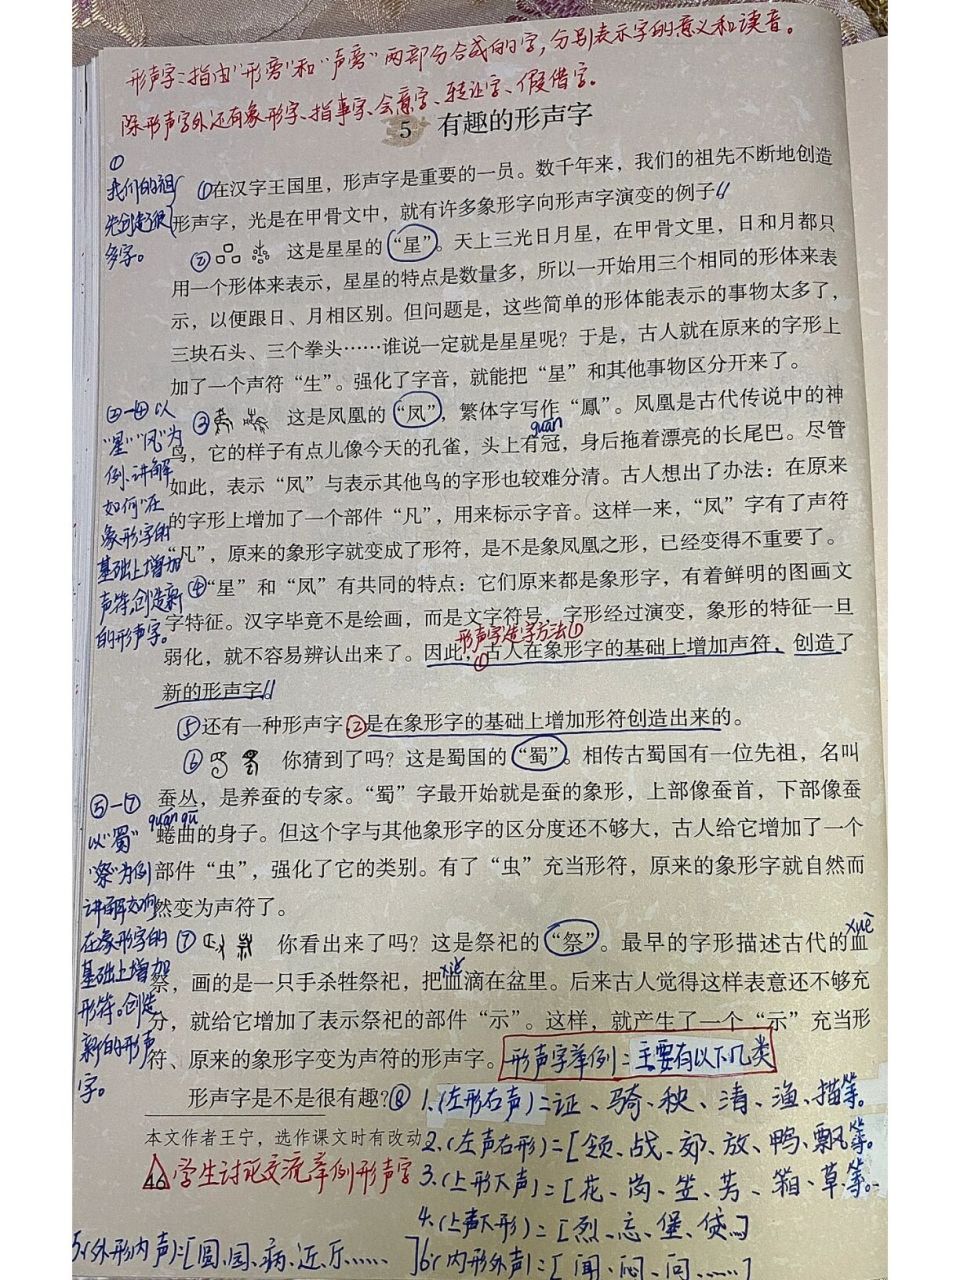 形声字：指由“形旁”和“声旁”两部分合成的字，分别表示字的意义和读音。
除形声字外还有象形字、指事字、会意字、转注字、假借字。
5 有趣的形声字
①
我们的祖
先创造了很
多字。
①在汉字王国里，形声字是重要的一员。数千年来，我们的祖先不断地创造
形声字，光是在甲骨文中，就有许多象形字向形声字演变的例子。
② 这是星星的“星”。天上三光日月星，在甲骨文里，日和月都只
用一个形体来表示，星星的特点是数量多，所以一开始用三个相同的形体来表
示，以便跟日、月相区别。但问题是，这些简单的形体能表示的事物太多了，
三块石头、三个拳头……谁说一定就是星星呢？于是，古人就在原来的字形上
加了一个声符“生”。强化了字音，就能把“星”和其他事物区分开来了。
②—④以
“星”“凤”为
例、讲解
如何“在
象形字的
基础上增加
声符，创造新
的形声字。
③ 这是凤凰的“凤”，繁体字写作“鳳”。凤凰是古代传说中的神
guān
鸟，它的样子有点儿像今天的孔雀，头上有冠，身后拖着漂亮的长尾巴。尽管
如此，表示“凤”与表示其他鸟的字形也较难分清。古人想出了办法：在原来
的字形上增加了一个部件“凡”，用来标示字音。这样一来，“凤”字有了声符
“凡”，原来的象形字就变成了形符，是不是象凤凰之形，已经变得不重要了。
④“星”和“凤”有共同的特点：它们原来都是象形字，有着鲜明的图画文
字特征。汉字毕竟不是绘画，而是文字符号，字形经过演变，象形的特征一旦
形声字造字方法①
弱化，就不容易辨认出来了。因此，①古人在象形字的基础上增加声符，创造了
新的形声字。
⑤还有一种形声字②是在象形字的基础上增加形符创造出来的。
⑥ 你猜到了吗？这是蜀国的“蜀”。相传古蜀国有一位先祖，名叫
蚕丛，是养蚕的专家。“蜀”字最开始就是蚕的象形，上部像蚕首，下部像蚕
quán qū
蜷曲的身子。但这个字与其他象形字的区分度还不够大，古人给它增加了一个
部件“虫”，强化了它的类别。有了“虫”充当形符，原来的象形字就自然而
然变为声符了。
⑤—⑦
以“蜀”
“祭”为例
讲解如何
在象形字的
基础上增加
形符。创造
新的形声
字。
⑦ 你看出来了吗？这是祭祀的“祭”。最早的字形描述古代的血
xuè
祭，画的是一只手杀牲祭祀，把血滴在盆里。后来古人觉得这样表意还不够充
xiě
分，就给它增加了表示祭祀的部件“示”。这样，就产生了一个“示”充当形
符、原来的象形字变为声符的形声字。
形声字举例：主要有以下几类
形声字是不是很有趣？⑧
1.(左形右声)：证、骑、秧、清、渔、描等。
本文作者王宁，选作课文时有改动
2.(左声右形)：[领、战、郊、放、鸭、飘等。
46 学生讨论交流举例形声字
3.(上形下声)：[花、岗、笠、芳、箱、草等。
4.(上声下形)：[烈、忘、堡、贷]
5.(外形内声)：[圆、国、病、近、厅……]
6.(内形外声)：[闻、闷、问……]